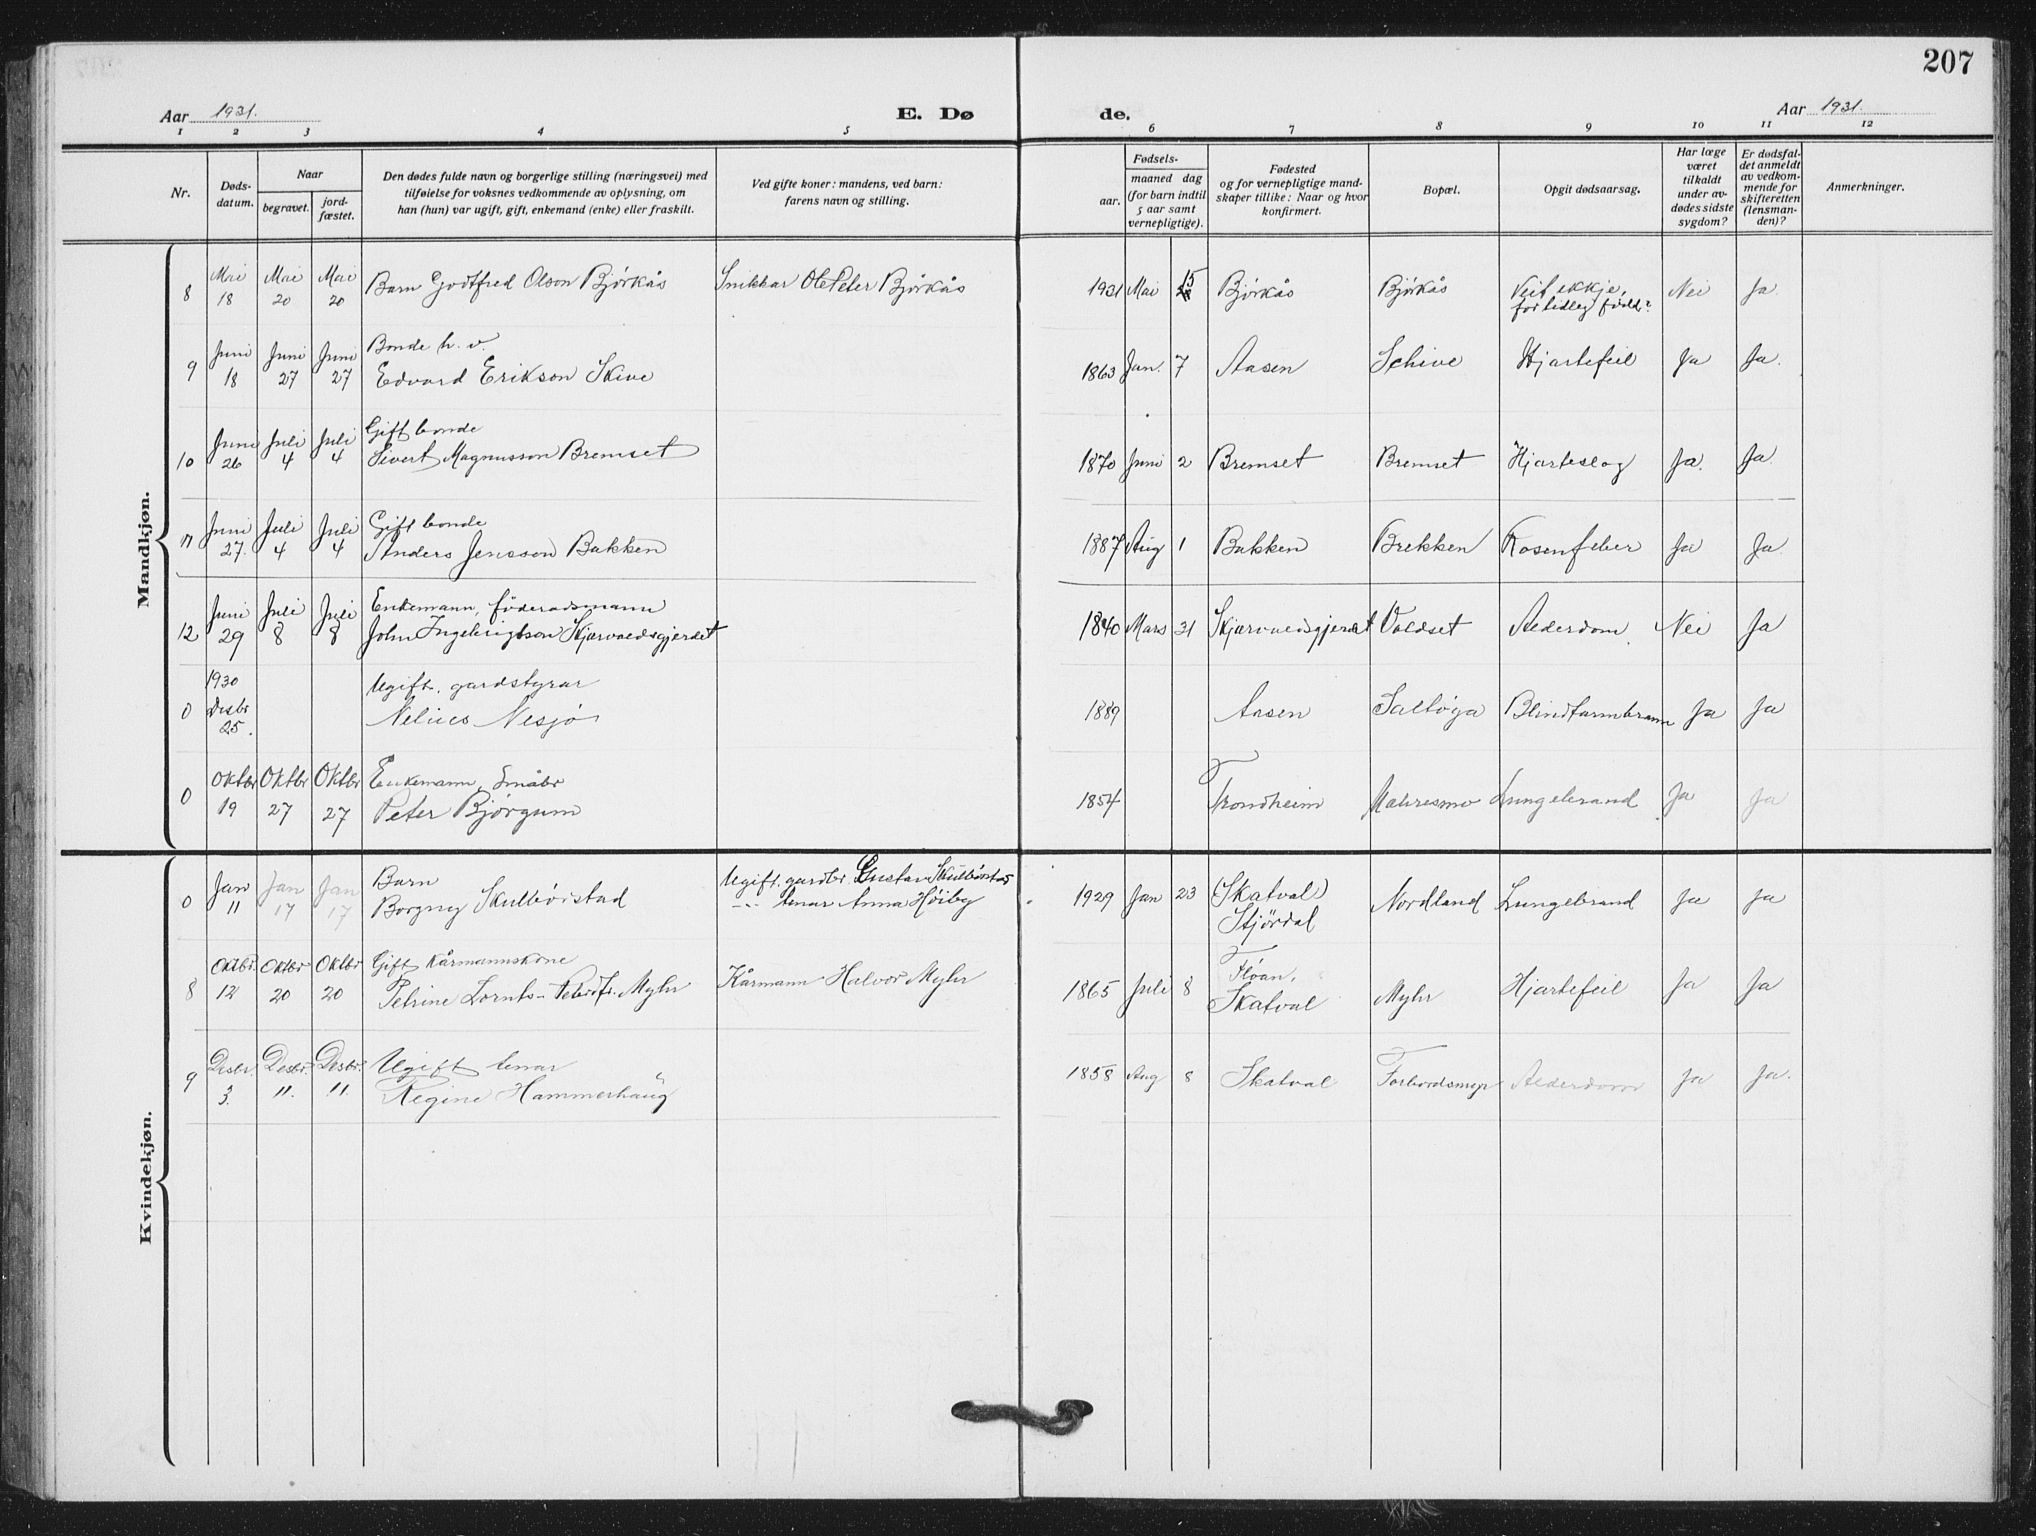 207
Aar 1931.
E. Dø
de.
Aar 1931.
1 2 3 4 5 6 7 8 9 10 11 12
Nr.
Døds-
datum.
Naar
begravet.
jord-
fæstet.
Den dødes fulde navn og borgerlige stilling (næringsvei) med
tilføielse for voksnes vedkommende av oplysning, om
han (hun) var ugift, gift, enkemand (enke) eller fraskilt.
Ved gifte koner: mandens, ved barn:
farens navn og stilling.
Fødsels-
aar.
maaned dag
(for barn indtil
5 aar samt
vernepligtige).
Fødested
og for vernepligtige mand-
skaper tillike: Naar og hvor
konfirmert.
Bopæl.
Opgit dødsaarsag.
Har læge
været
tilkaldt
under av-
dødes sidste
sygdom?
Er dødsfal-
det anmeldt
av vedkom-
mende for
skifteretten
(lensman-
den)?
Anmerkninger.
Mandkjøn.
8 Mai 18 Mai 20 Mai 20 Barn Godtfred Olson Bjørkås Snikkar Ole Peter Bjørkås 1931 Mai 15 Bjørkås Bjørkås Veit ikkje, Nei Ja
for tidleg født?
Bonde h. v
9 Juni 18 Juni 27 Juni 27 Edvard Erikson Skive 1863 Jan. 7 Aasen Schive Hjartefeil Ja Ja.
Gift bonde
10 Juni 26 Juli 4 Juli 4 Sivert Magnusson Bremset 1870 Juni 2 Bremset Bremset Hjarteslag Ja. Ja.
Gift bonde
11 Juni 27. Juli 4 Juli 4 Anders Jensson Bakken 1887 Aug 1 Bakken Brekken Rosenfeber Ja Ja.
Enkemann, føderådsmann
12 Juni 29 Juli 8 Juli 8 John Ingebrigtson Skjervoldsgjerdet 1840 Mars 31 Voldset Aalderdom. Nei Ja
1930
Ugift. gardstyrar
0 Desbr 25. Nelius Nesjø 1889 Aasen Saltøya Blindtarmbrann Ja Ja
Enkemann, Småbr
0 Oktbr 19 Oktbr 27 Oktbr 27 Peter Bjørgum 1854 Trondheim Mæhresmo Lungebrand Ja Ja
Kvindekjøn.
Barn Ugift. gardbr. Gustav Skulbørstad
0 Jan 11 Jan 17 Jan 17 Borgny Skulbørstad --- tenar Anna Høiby 1929 Jan 23 (Skatval) Nordland Lungebrand Ja Ja
Stjørdal
Gift kårmannskone
8 Oktbr. 12 Oktbr 20 Oktbr 20 Petrine Lornts- Petersdtr. Myhr Kårmann Halvor Myhr 1865 Juli 8 Fløan, Myhr Hjartefeil Ja Ja
Skatval
Ugift tenar
9 Desbr. 3. Desbr. 11. Desbr. 11. Regine Hammerhaug 1858 Aug 8 Skatval Forbordsmyr Aalderdom Ja Ja.